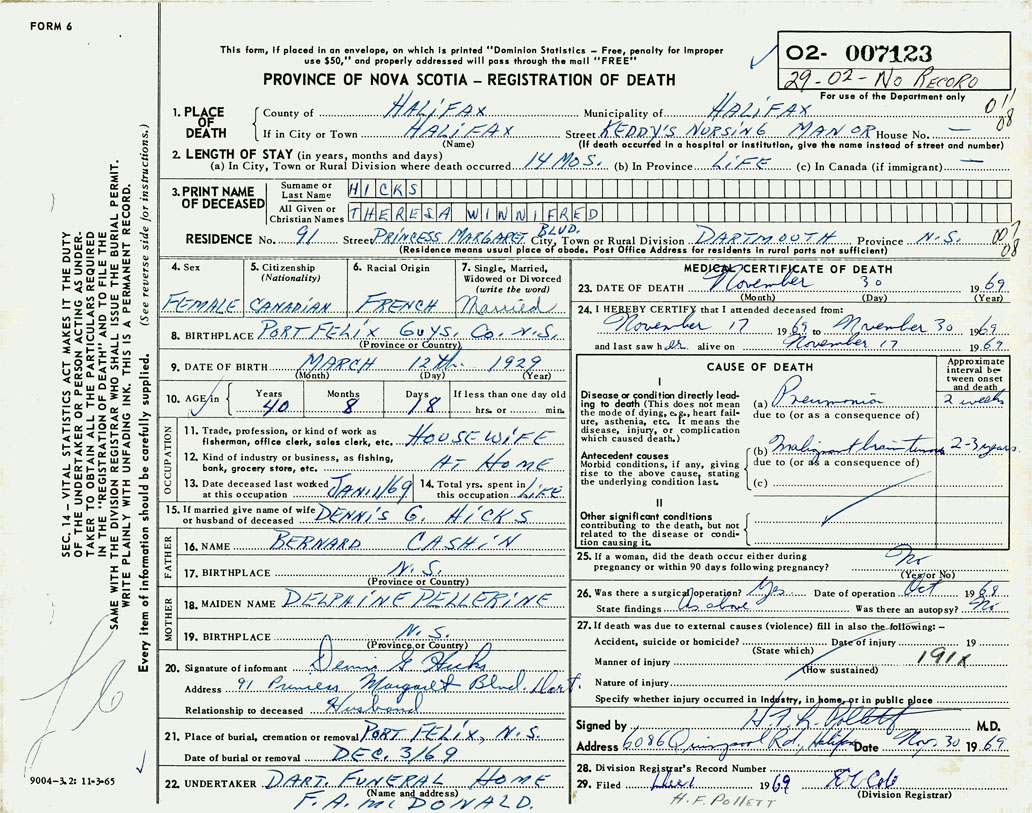 FORM 6
This form, if placed in an envelope, on which is printed "Dominion Statistics – Free, penalty for improper
use $50," and properly addressed will pass through the mail "FREE"
PROVINCE OF NOVA SCOTIA – REGISTRATION OF DEATH
02- 007123
29-02-NO RECORD
For use of the Department only
011
08
1. PLACE OF DEATH
County of HALIFAX Municipality of HALIFAX
If in City or Town HALIFAX Street KEDDY'S NURSING MANOR House No. —
(Name) (If death occurred in a hospital or institution, give the name instead of street and number)
2. LENGTH OF STAY (in years, months and days)
(a) In City, Town or Rural Division where death occurred 14 MOS. (b) In Province LIFE (c) In Canada (if immigrant) —
3. PRINT NAME OF DECEASED
Surname or Last Name HICKS
All Given or Christian Names THERESA WINNIFRED
RESIDENCE No. 91 Street PRINCESS MARGARET BLVD. City, Town or Rural Division DARTMOUTH Province N.S.
(Residence means usual place of abode. Post Office Address for residents in rural parts not sufficient)
007
08
4. Sex
FEMALE
5. Citizenship (Nationality)
CANADIAN
6. Racial Origin
FRENCH
7. Single, Married, Widowed or Divorced (write the word)
Married
8. BIRTHPLACE PORT FELIX GUYS. CO. N.S.
(Province or Country)
9. DATE OF BIRTH MARCH 12th. 1929
(Month) (Day) (Year)
10. AGE in Years 40 Months 8 Days 18 If less than one day old hrs. or min.
OCCUPATION
11. Trade, profession, or kind of work as fisherman, office clerk, sales clerk, etc. HOUSEWIFE
12. Kind of industry or business, as fishing, bank, grocery store, etc. AT HOME
13. Date deceased last worked at this occupation JAN,1/69
14. Total yrs. spent in this occupation LIFE
15. If married give name of wife or husband of deceased DENNIS G. HICKS
FATHER
16. NAME BERNARD CASHIN
17. BIRTHPLACE N.S.
(Province or Country)
MOTHER
18. MAIDEN NAME DELPHINE PELLERINE
19. BIRTHPLACE N.S.
(Province or Country)
20. Signature of informant Dennis G Hicks
Address 91 Princess Margaret Blvd. Dart.
Relationship to deceased Husband
21. Place of burial, cremation or removal PORT FELIX, N.S.
Date of burial or removal DEC. 3/69
22. UNDERTAKER DART. FUNERAL HOME
(Name and address)
F. A. McDONALD.
MEDICAL CERTIFICATE OF DEATH
23. DATE OF DEATH November 30 1969
(Month) (Day) (Year)
24. I HEREBY CERTIFY that I attended deceased from:
November 17 1969 to November 30 1969
and last saw her alive on November 17 1969
CAUSE OF DEATH
Approximate interval between onset and death
I
Disease or condition directly leading to death (This does not mean the mode of dying, e.g., heart failure, asthenia, etc. It means the disease, injury, or complication which caused death.)
(a) Pneumonia 2 weeks
due to (or as a consequence of)
Antecedent causes
Morbid conditions, if any, giving rise to the above cause, stating the underlying condition last.
(b) Malignant brain tumor 2-3 years.
due to (or as a consequence of)
(c)
II
Other significant conditions
contributing to the death, but not related to the disease or condition causing it.
25. If a woman, did the death occur either during pregnancy or within 90 days following pregnancy? No
(Yes or No)
26. Was there a surgical operation? Yes Date of operation Oct 1968
State findings As above Was there an autopsy? No
27. If death was due to external causes (violence) fill in also the following: –
Accident, suicide or homicide? Date of injury 19
(State which)
Manner of injury 191X
(How sustained)
Nature of injury
Specify whether injury occurred in Industry, in home, or in public place
Signed by H F R Pollett M.D.
Address 6086 Quinpool Rd, Halifax Date Nov. 30 1969
28. Division Registrar's Record Number
29. Filed 1969
(Division Registrar)
H. F. POLLETT
SEC. 14 – VITAL STATISTICS ACT MAKES IT THE DUTY
OF THE UNDERTAKER OR PERSON ACTING AS UNDER-
TAKER TO OBTAIN ALL THE PARTICULARS REQUIRED
IN THE "REGISTRATION OF DEATH" AND TO FILE THE
SAME WITH THE DIVISION REGISTRAR WHO SHALL ISSUE THE BURIAL PERMIT.
WRITE PLAINLY WITH UNFADING INK. THIS IS A PERMANENT RECORD.
Every item of information should be carefully supplied. (See reverse side for instructions.)
9004-3.2: 11-3-65